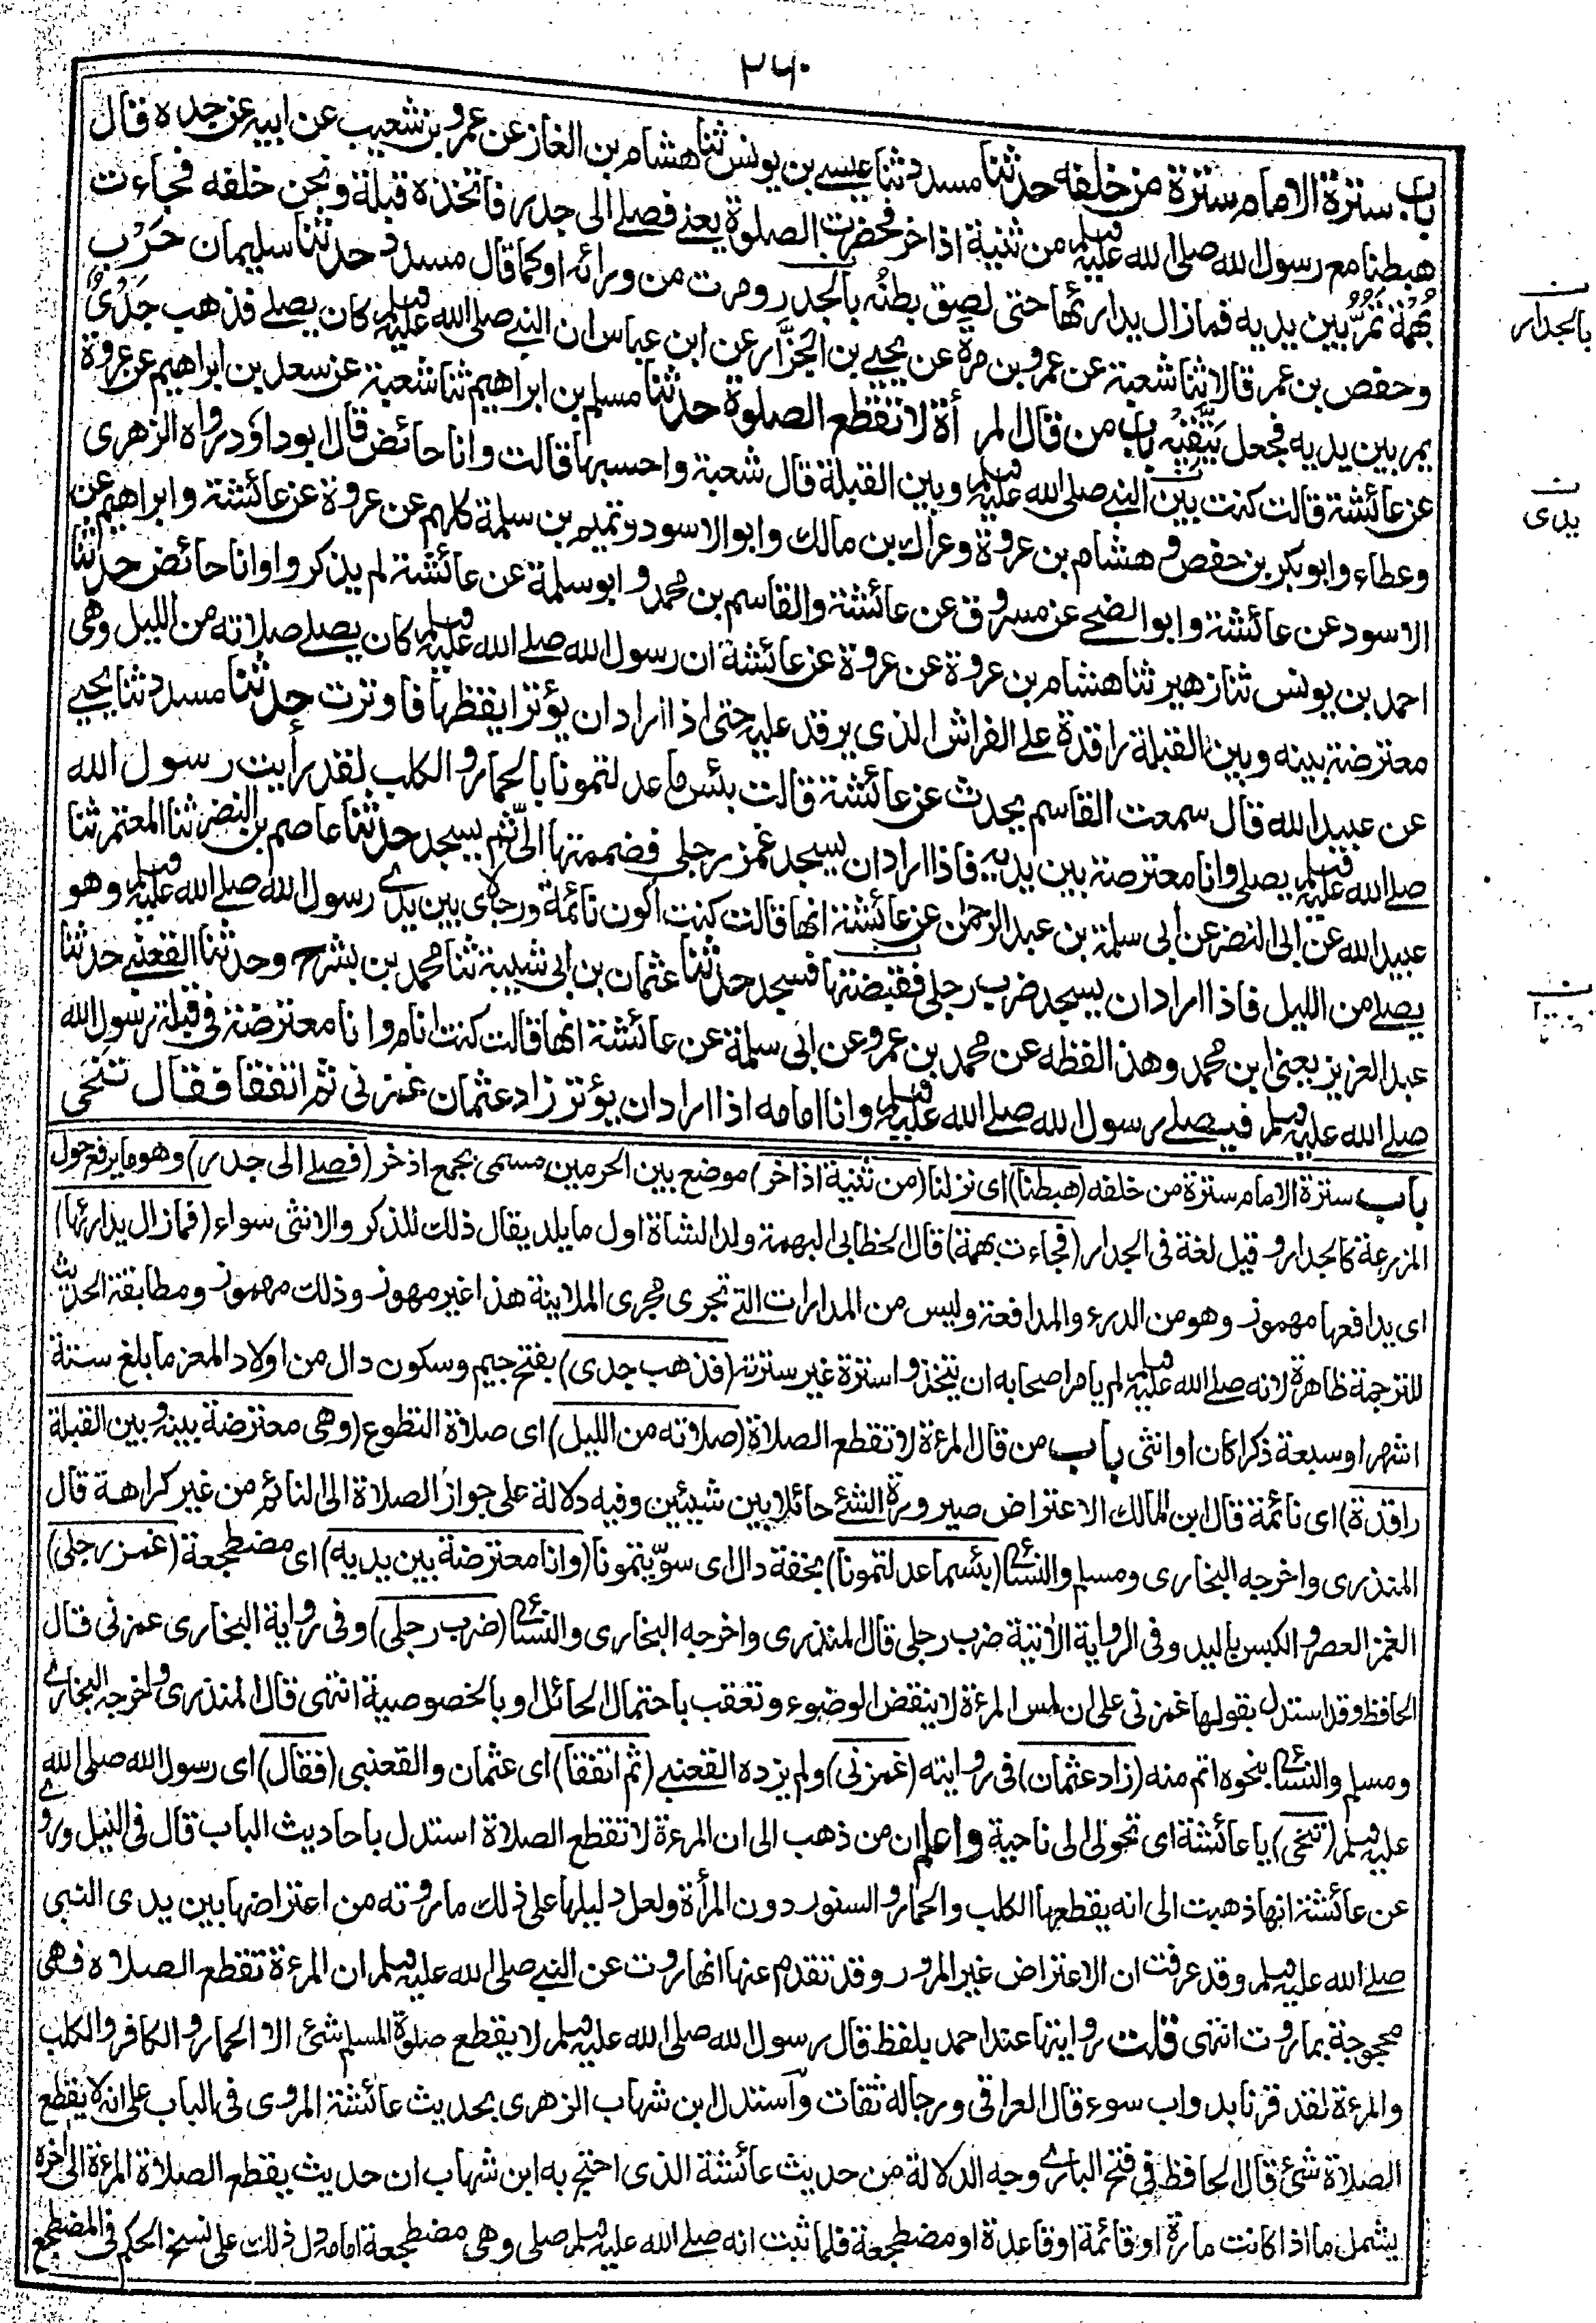 ٢٦٠
باب سترة الامام سترة من خلفه حدثنا مسدد ثنا عيسى بن يونس ثنا هشام بن الغاز عن عمرو بن شعيب عن ابيه عن جده قال
هبطنا مع رسول الله صلى الله عليه وسلم من ثنية اذاخر فحضرت الصلوة يعنى فصلى الى جدر فاتخذه قبلة ونحن خلفه فجاءت
بهمة تمر بين يديه فمازال يدارئها حتى لصق بطنه بالجدر ومرت من ورائه او كما قال مسدد حدثنا سليمان حرب
وحفص بن عمر قالا ثنا شعبة عن عمرو بن مرة عن يحيى بن الجزار عن ابن عباس ان النبى صلى الله عليه وسلم كان يصلى فذهب جدى
يمر بين يديه فجعل يتقيه باب من قال المرأة لا تقطع الصلوة حدثنا مسلم بن ابراهيم ثنا شعبة عن سعد بن ابراهيم عن عروة
عن عائشة قالت كنت بين النبى صلى الله عليه وسلم وبين القبلة قال شعبة واحسبها قالت وانا حائض قال ابو داود رواه الزهرى
وعطاء وابو بكر بن حفص وهشام بن عروة وعراك بن مالك وابو الاسود وتميم بن سلمة كلهم عن عروة عن عائشة وابراهيم عن
الاسود عن عائشة وابو الضحى عن مسروق عن عائشة والقاسم بن محمد وابو سلمة عن عائشة لم يذكروا وانا حائض حدثنا
احمد بن يونس ثنا زهير ثنا هشام بن عروة عن عروة عن عائشة ان رسول الله صلى الله عليه وسلم كان يصلى صلاته من الليل وهى
معترضة بينه وبين القبلة راقدة على الفراش الذى يرقد عليه حتى اذا اراد ان يؤتر ايقظها فاوترت حدثنا مسدد ثنا يحيى
عن عبيد الله قال سمعت القاسم يحدث عن عائشة قالت بئس ما عدلتمونا بالحمار والكلب لقد رأيت رسول الله
صلى الله عليه وسلم يصلى وانا معترضة بين يديه فاذا اراد ان يسجد غمز رجلى فضممتها الى ثم يسجد حدثنا عاصم بن النضر ثنا المعتمر ثنا
عبيد الله عن ابى النضر عن ابى سلمة بن عبد الرحمن عن عائشة انها قالت كنت اكون نائمة ورجلاى بين يدى رسول الله صلى الله عليه وسلم وهو
يصلى من الليل فاذا اراد ان يسجد ضرب رجلى فقبضتها فسجد حدثنا عثمان بن ابى شيبة ثنا محمد بن بشر ح وحدثنا القعنبى حدثنا
عبد العزيز يعنى ابن محمد وهذا لفظه عن محمد بن عمرو عن ابى سلمة عن عائشة انها قالت كنت انام وانا معترضة فى قبلة رسول الله
صلى الله عليه وسلم فيصلى رسول الله صلى الله عليه وسلم وانا امامه اذا اراد ان يؤتر زاد عثمان غمزنى ثم اتفقا فقال تنحى
باب سترة الامام سترة من خلفه (هبطنا) اى نزلنا (من ثنية اذاخر) موضع بين الحرمين مسمى بجمع اذخر (فصلى الى جدر) وهو ما يرفع حول
المزرعة كالجدار وقيل لغة فى الجدار (فجاءت بهمة) قال الخطابى البهمة ولد الشاة اول ما يلد يقال ذلك للذكر والانثى سواء (فمازال يدارئها)
اى يدافعها مهموز وهو من الدرء والمدافعة وليس من المدارات التى تجرى مجرى الملاينة هذا غير مهموز وذلك مهموز ومطابقة الحديث
للترجمة ظاهرة لانه صلى الله عليه وسلم لم يامر اصحابه ان يتخذوا سترة غير سترته (فذهب جدى) بفتح جيم وسكون دال من اولاد المعز ما بلغ ستة
اشهر او سبعة ذكرا كان او انثى باب من قال المرءة لا تقطع الصلاة (صلاته من الليل) اى صلاة التطوع (وهى معترضة بينه وبين القبلة
راقدة) اى نائمة قال ابن المالك الاعتراض صيرورة الشئ حائلا بين شيئين وفيه دلالة على جواز الصلاة الى النائم من غير كراهة قال
المنذرى واخرجه البخارى ومسلم والنسائى (بئسما عدلتمونا) بخفة دال اى سويتمونا (وانا معترضة بين يديه) اى مضطجعة (غمز رجلى)
الغمز العصر والكبس باليد وفى الرواية الآتية ضرب رجلى قال المنذرى واخرجه البخارى والنسائى (ضرب رجلى) وفى رواية البخارى غمزنى قال
الحافظ وقد استدل بقولها غمزنى على ان لمس المرءة لا ينقض الوضوء وتعقب باحتمال الحائل او بالخصوصية انتهى قال المنذرى واخرجه البخارى
ومسلم والنسائى بنحوه اتم منه (زاد عثمان) فى روايته (غمزنى) ولم يزده القعنبى (ثم اتفقا) اى عثمان والقعنبى (فقال) اى رسول الله صلى الله
عليه وسلم (تنحى) يا عائشة اى تحولى الى ناحية واعلم ان من ذهب الى ان المرءة لا تقطع الصلاة استدل باحاديث الباب قال فى النيل وروى
عن عائشة انها ذهبت الى انه يقطعها الكلب والحمار والسنور دون المرأة ولعل دليلها على ذلك ما روته من اعتراضها بين يدى النبى
صلى الله عليه وسلم وقد عرفت ان الاعتراض غير المرور وقد تقدم عنها انها روت عن النبى صلى الله عليه وسلم ان المرءة تقطع الصلاة فهى
محجوجة بما روت انتهى قلت روايتها عند احمد بلفظ قال رسول الله صلى الله عليه وسلم لا يقطع صلوة المسلم شئ الا الحمار والكافر والكلب
والمرءة لقد قرنا بدواب سوء قال العراقى ورجاله ثقات واستدل ابن شهاب الزهرى بحديث عائشة المروى فى الباب على انه لا يقطع
الصلاة شئ قال الحافظ فى فتح البارى وجه الدلالة من حديث عائشة الذى احتج به ابن شهاب ان حديث يقطع الصلاة المرءة الى آخره
يشمل ما اذا كانت مارة او قائمة او قاعدة او مضطجعة فلما ثبت انه صلى الله عليه وسلم صلى وهى مضطجعة امامه دل ذلك على نسخ الحكم فى المضطجع
ن
بالجدار
ن
يدى
ن